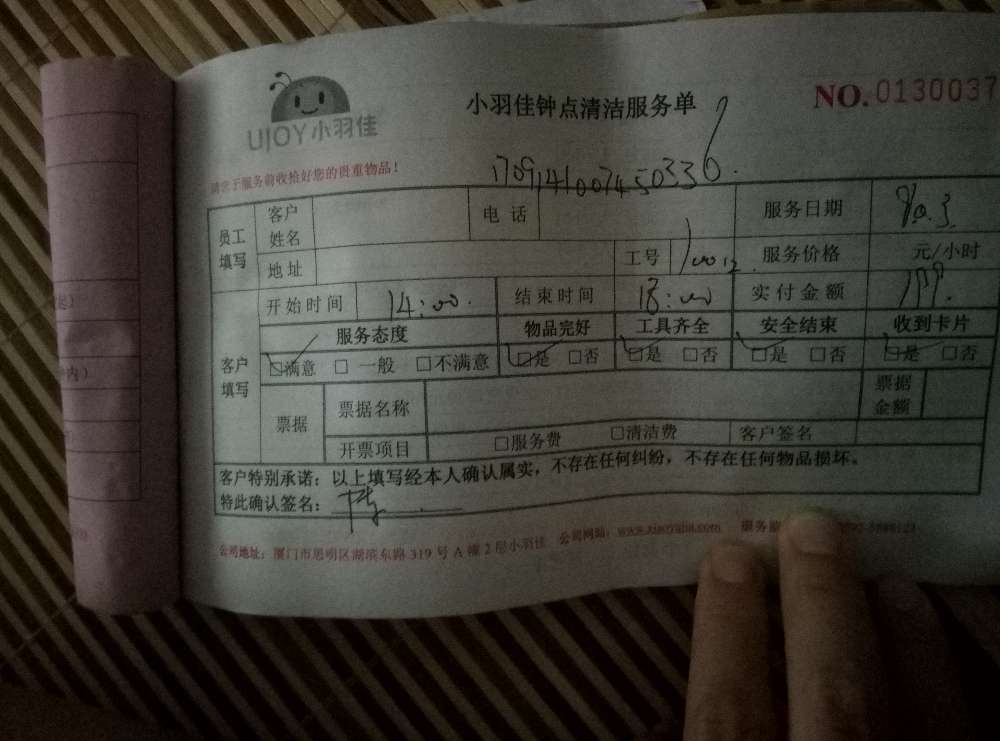 UJOY小羽佳
小羽佳钟点清洁服务单
NO.0130037
请您于服务前收拾好您的贵重物品!
员工填写 客户姓名 电话 服务日期
地址 工号 服务价格 元/小时
开始时间 14:00 结束时间 18:00 实付金额
客户填写 服务态度 物品完好 工具齐全 安全结束 收到卡片
□满意 □ 一般 □不满意 □是 □否 □是 □否 □是 □否 □是 □否
票据 票据名称 票据金额
开票项目 □服务费 □清洁费 客户签名
客户特别承诺:以上填写经本人确认属实,不存在任何纠纷,不存在任何物品损坏。
特此确认签名:
公司地址:厦门市思明区湖滨东路 319 号 A 幢 2 层小羽佳 公司网站: